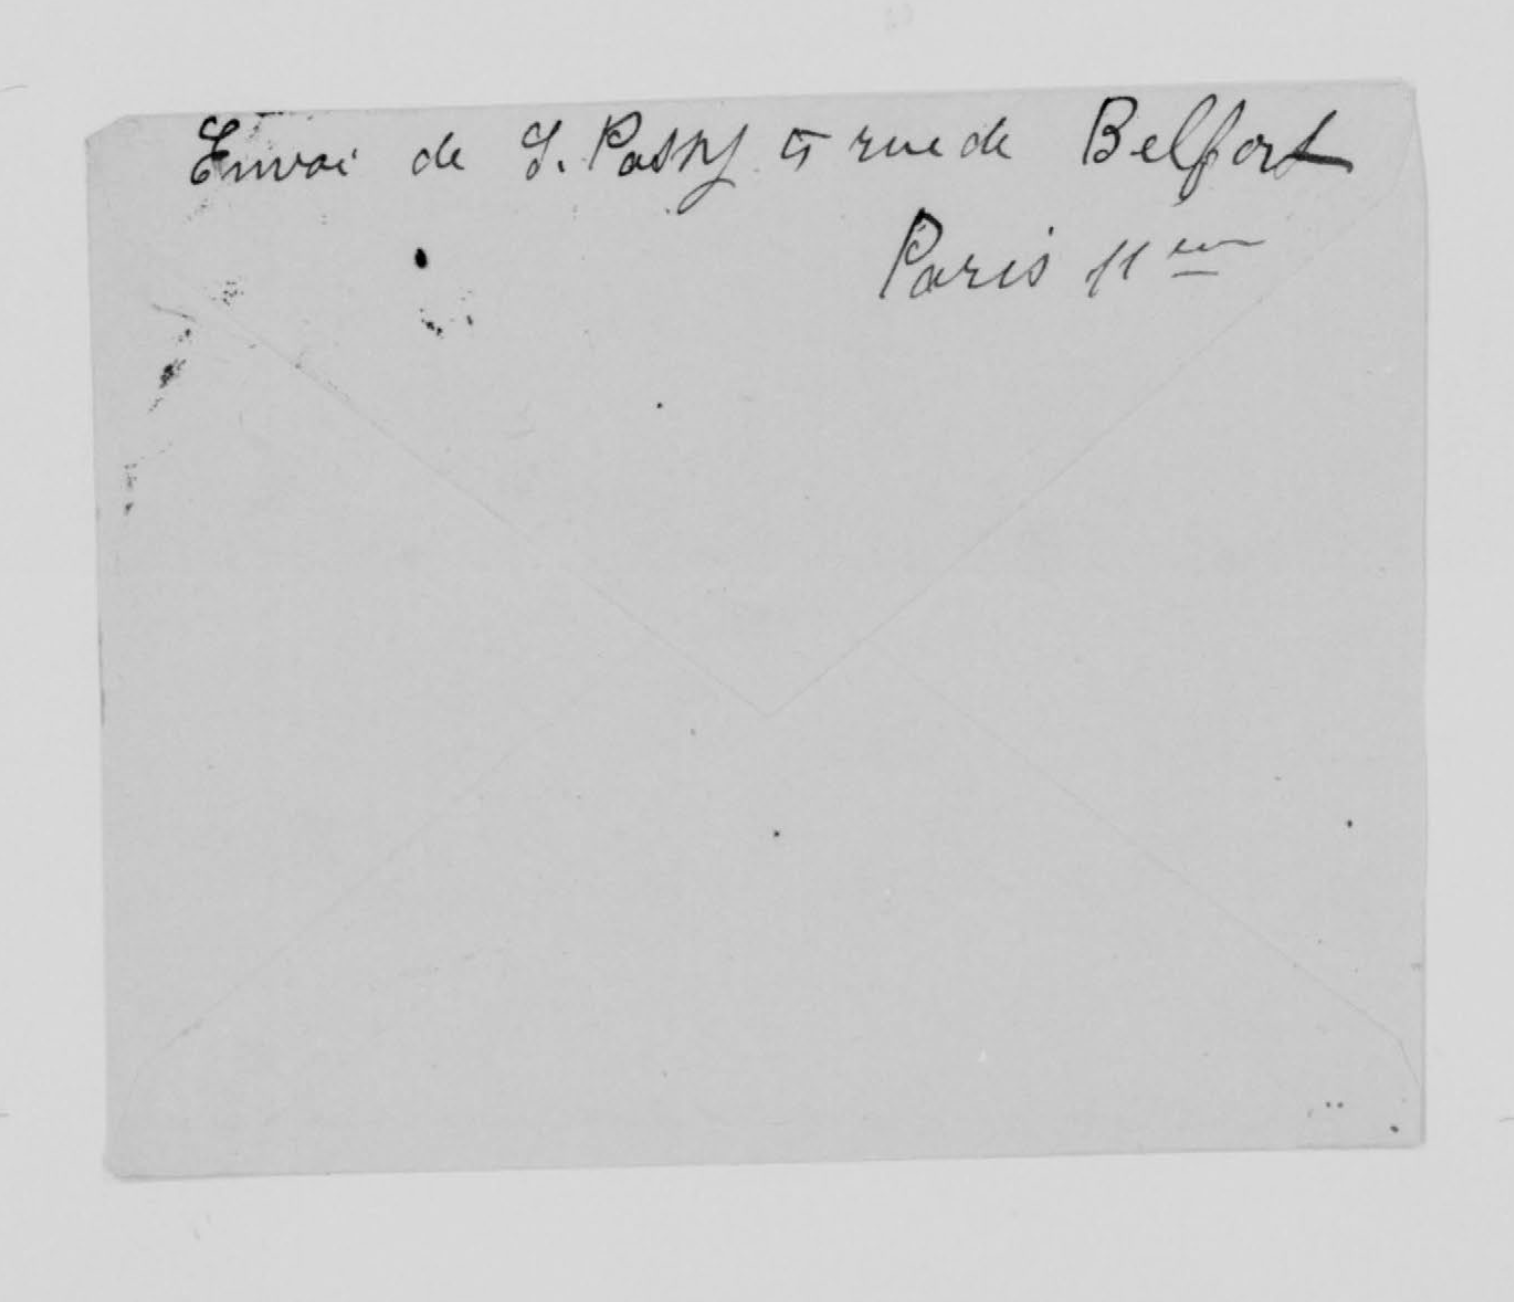 Envoi de S. Passy 5 rue de Belfort
Paris 11em